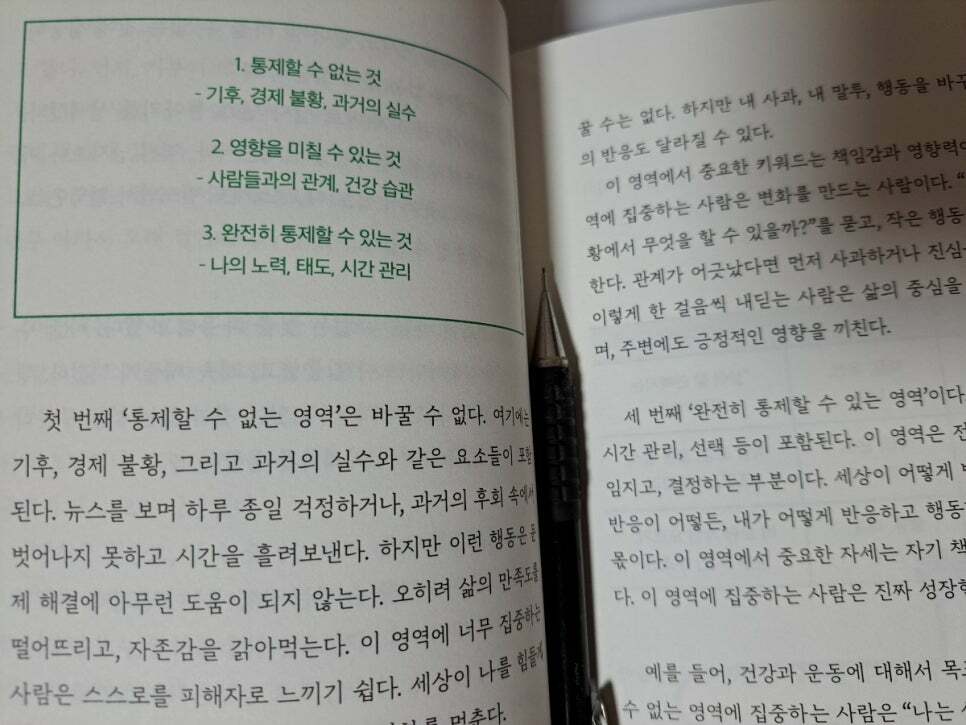 1. 통제할 수 없는 것
- 기후, 경제 불황, 과거의 실수
2. 영향을 미칠 수 있는 것
- 사람들과의 관계, 건강 습관
3. 완전히 통제할 수 있는 것
- 나의 노력, 태도, 시간 관리
첫 번째 ‘통제할 수 없는 영역’은 바꿀 수 없다. 여기에는
기후, 경제 불황, 그리고 과거의 실수와 같은 요소들이 포함
된다. 뉴스를 보며 하루 종일 걱정하거나, 과거의 후회 속에서
벗어나지 못하고 시간을 흘려보낸다. 하지만 이런 행동은 문
제 해결에 아무런 도움이 되지 않는다. 오히려 삶의 만족도를
떨어뜨리고, 자존감을 갉아먹는다. 이 영역에 너무 집중하는
사람은 스스로를 피해자로 느끼기 쉽다. 세상이 나를 힘들게
멈춘다.
꿀 수는 없다. 하지만 내 사과, 내 말투, 행동을 바꾸
의 반응도 달라질 수 있다.
이 영역에서 중요한 키워드는 책임감과 영향력이
역에 집중하는 사람은 변화를 만드는 사람이다. “
황에서 무엇을 할 수 있을까?”를 묻고, 작은 행동
한다. 관계가 어긋났다면 먼저 사과하거나 진심
이렇게 한 걸음씩 내딛는 사람은 삶의 중심을
며, 주변에도 긍정적인 영향을 끼친다.
세 번째 ‘완전히 통제할 수 있는 영역’이다
시간 관리, 선택 등이 포함된다. 이 영역은 전
임지고, 결정하는 부분이다. 세상이 어떻게
반응이 어떻든, 내가 어떻게 반응하고 행동
몫이다. 이 영역에서 중요한 자세는 자기 책
다. 이 영역에 집중하는 사람은 진짜 성장
예를 들어, 건강과 운동에 대해서 목
수 없는 영역에 집중하는 사람은 “나는